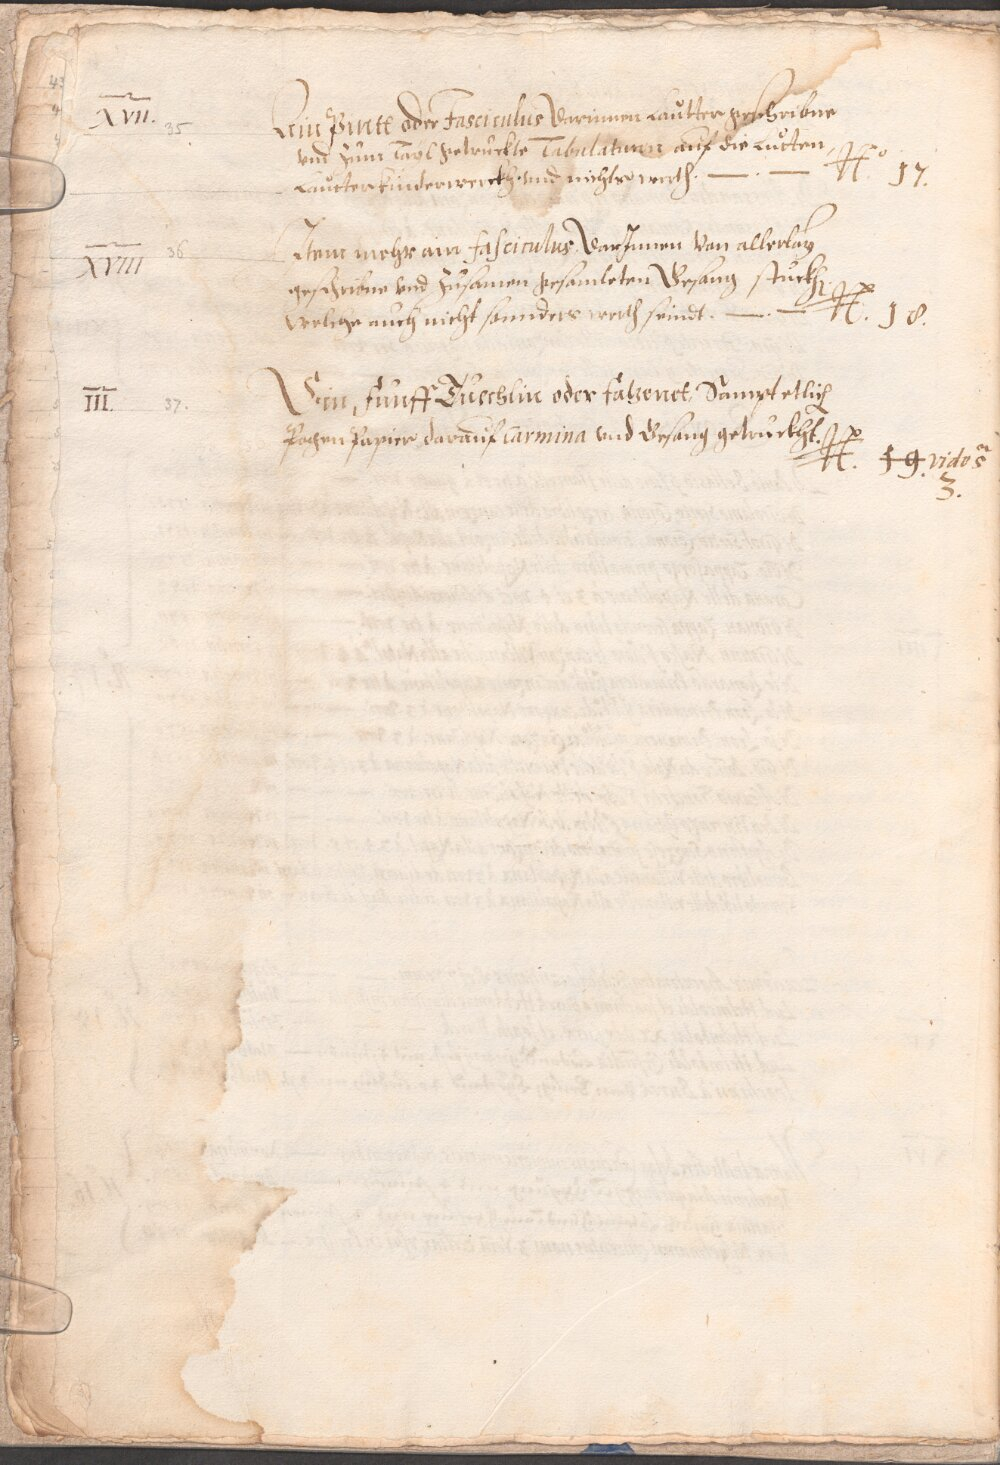 XVII. 35 Ein Puntt oder Fasciculus Darinnen Lautter geschribne
und Zum Tail getruckte Tabulaturn auf die Lutten,
Lautter Kinderwerckh. und nichts werth. — . — N.° 17.
XVIII 36 Item mehr ain fasciculus, DarInnen Von allerlay
geschribne und Zusamen gesamleten Gesang stuckh,
welche auch nicht sonnders werth seindt. — . — N. 18.
III. 37. Ein, funff Tuechlin oder fatzonet, Sampt etlich
Pogen Papier, darauf Carmina und Gesang getruckht.
N. 19. vide
3.